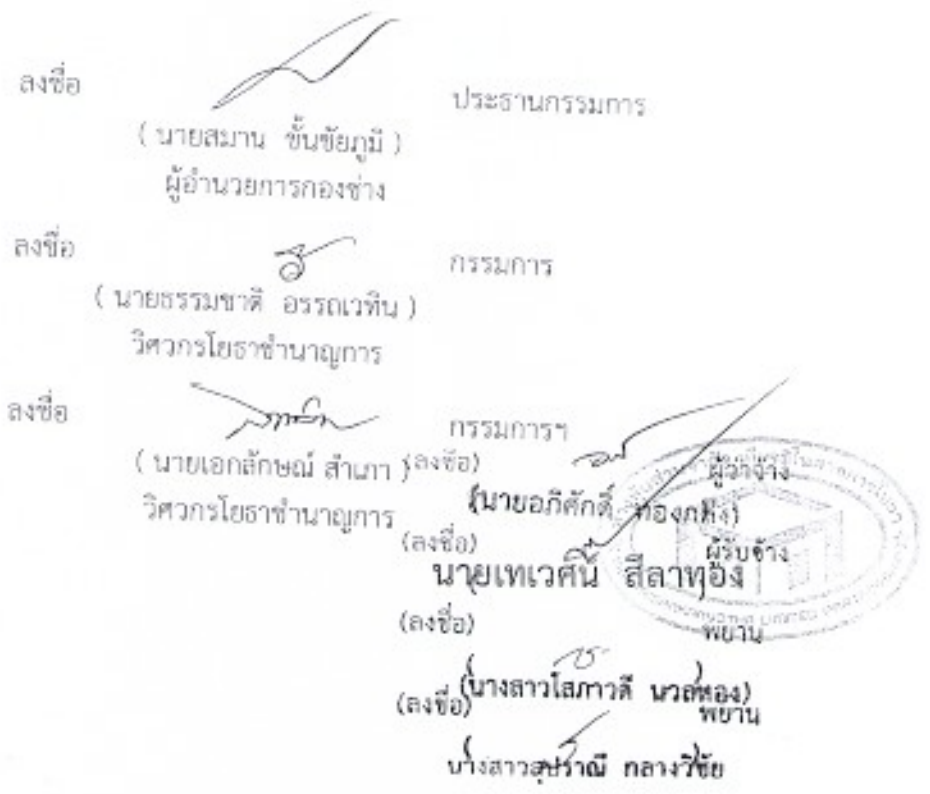 ลงชื่อ ประธานกรรมการ
( นายสมาน ขั้นชัยภูมิ )
ผู้อำนวยการกองช่าง
ลงชื่อ กรรมการ
( นายธรรมชาติ อรรถเวทิน )
วิศวกรโยธาชำนาญการ
ลงชื่อ กรรมการฯ
( นายเอกลักษณ์ สำเภา )
วิศวกรโยธาชำนาญการ
(ลงชื่อ) ผู้ว่าจ้าง
(นายอภิศักดิ์
(ลงชื่อ) ผู้รับจ้าง
นายเทเวศน์ สีลาทอง
(ลงชื่อ) พยาน
(นางสาวโสภาวดี นวลทอง)
(ลงชื่อ) พยาน
นางสาวสุปราณี กลางวิชัย